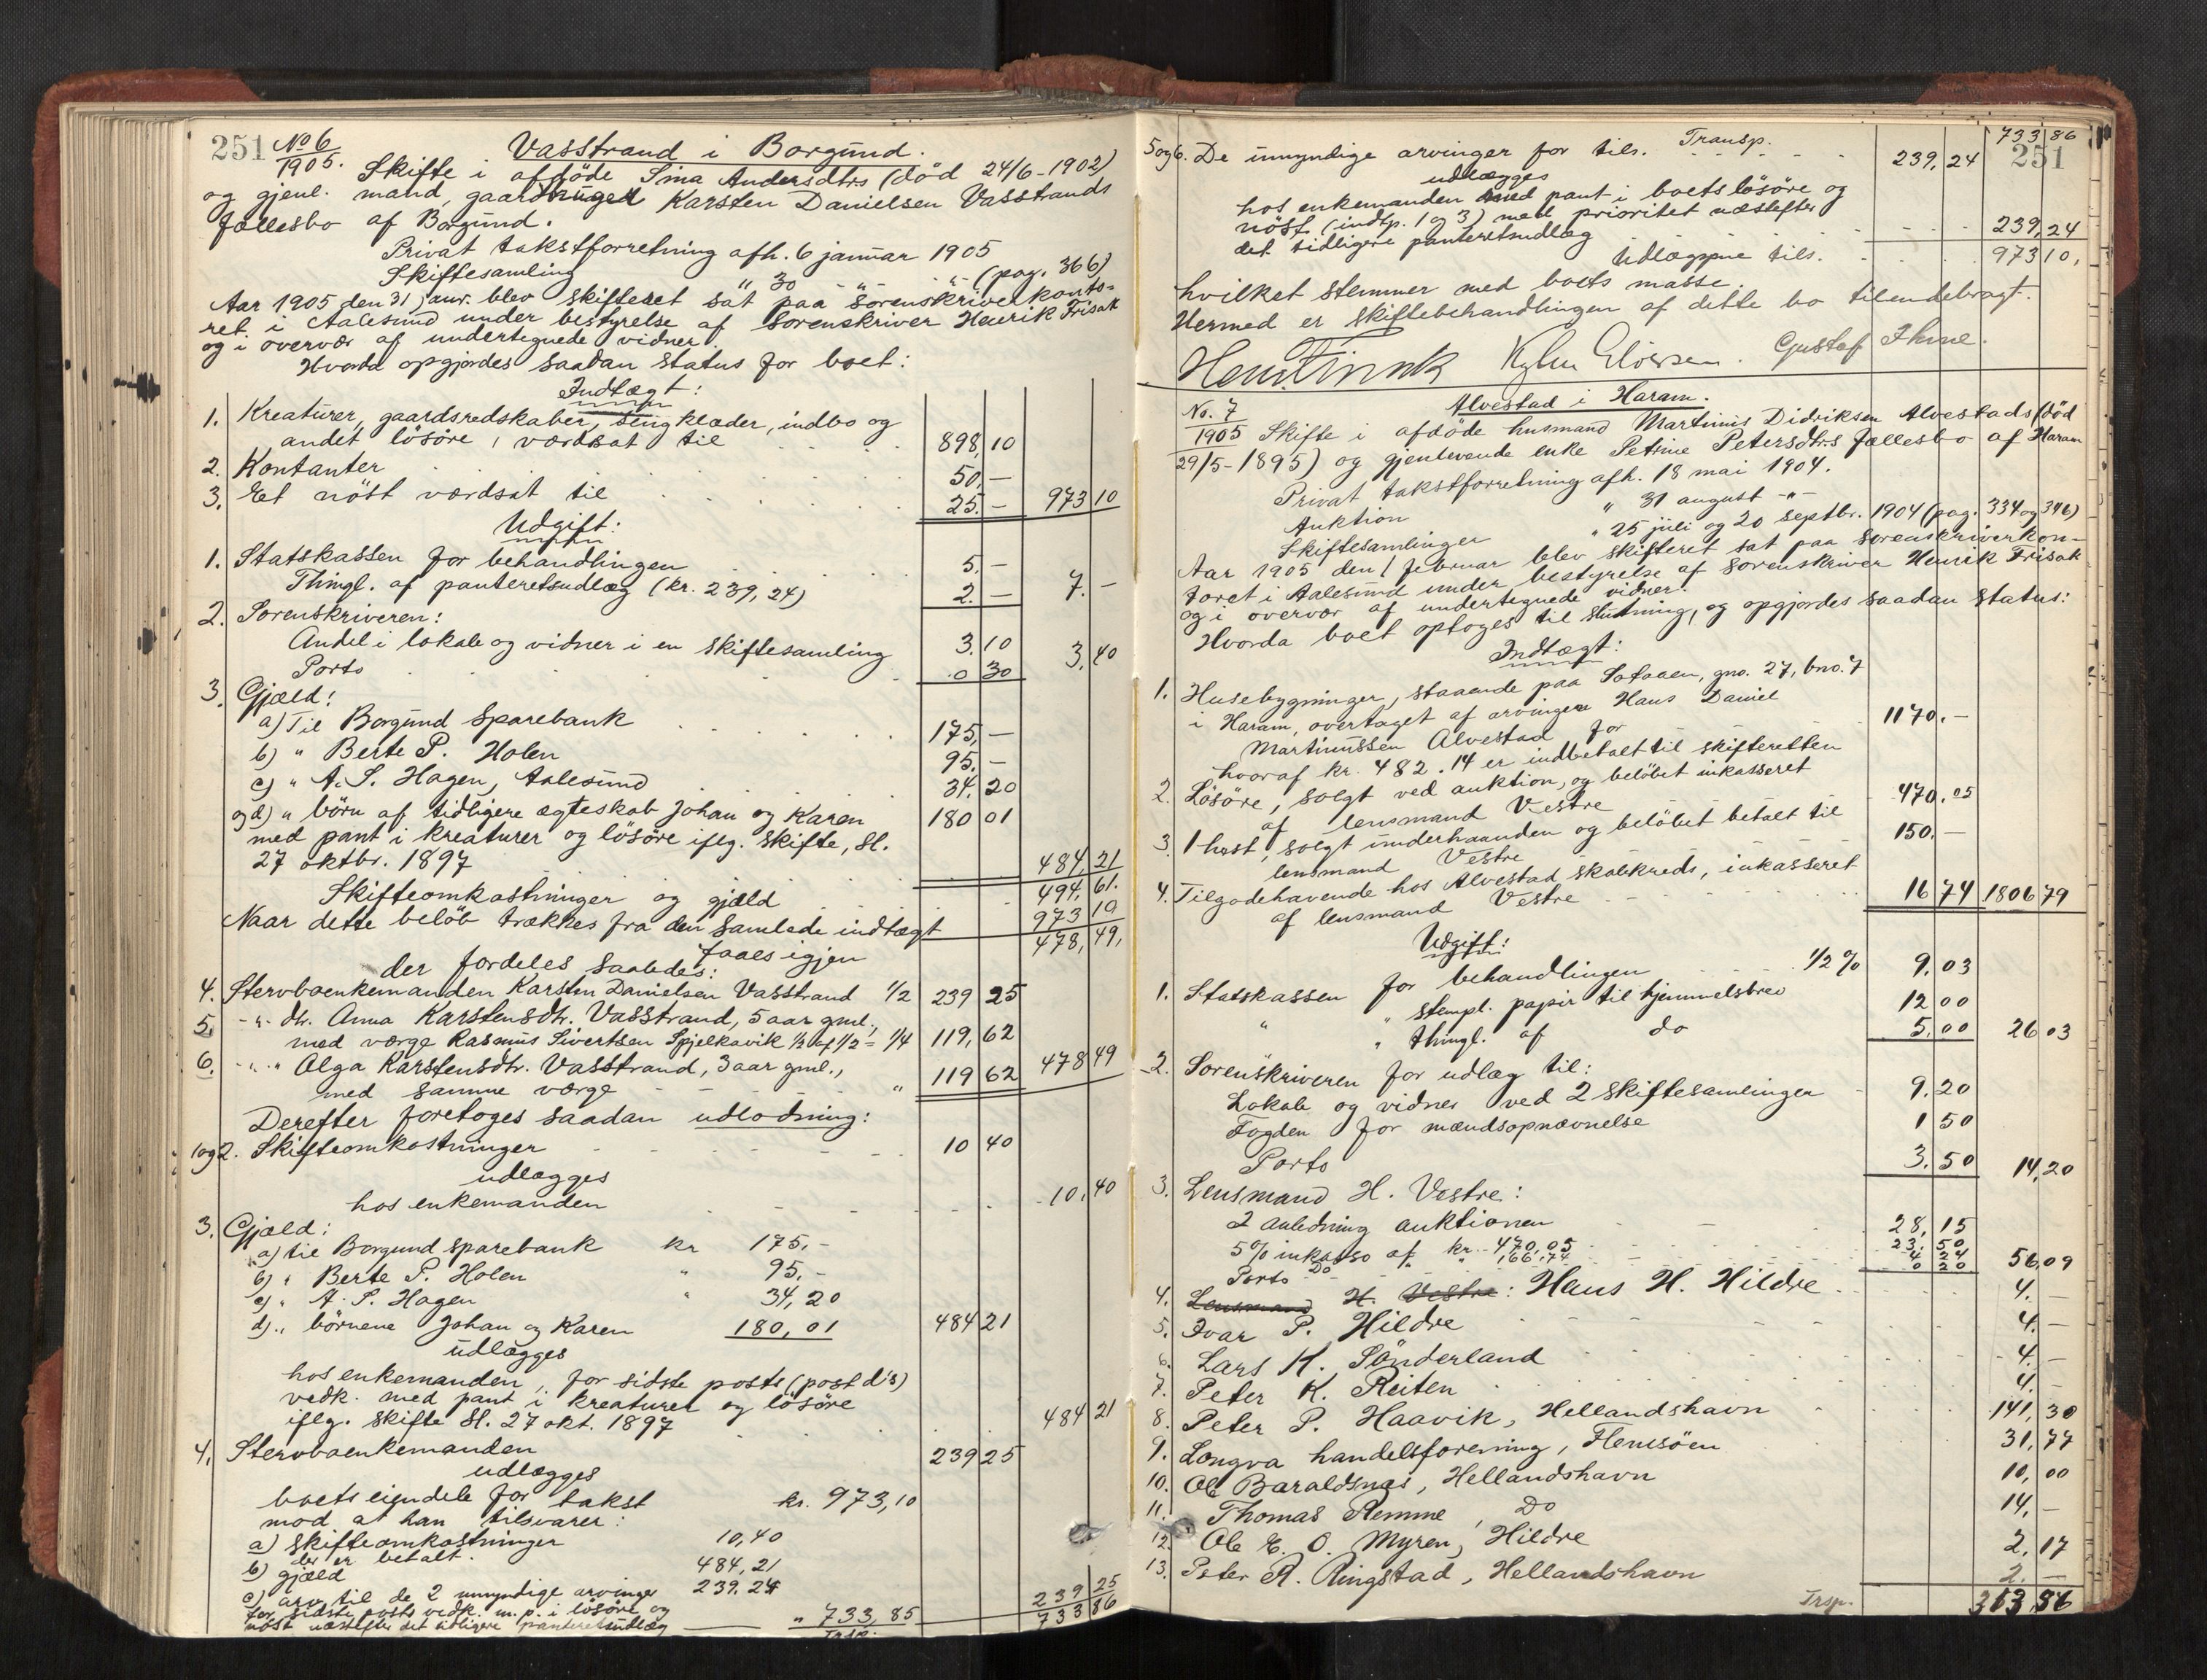 251 No 6 Vasstrand i Borgund.
1905. Skifte i afdöde Sina Andersdtrs (död 24/6-1902)
og gjenl. mand, gaardbruger Karsten Danielsen Vasstrands
fællesbo af Borgund.
Privat takstforretning afh. 6 januar 1905
Skiftesamling " 30 -"- -"- (pag. 366)
Aar 1905 den 31 janr. blev skifteret sat paa sorenskriverkonto-
ret i Aalesund under bestyrelse af Sorenskriver Henrik Frisak
og i overvær af undertegnede vidner.
Hvorda opgjordes saadan status for boet:
Indtægt:
1. Kreaturer, gaardsredskaber, sengklæder, indbo og
andet lösöre, værdsat til 898,10
2. Kontanter 50,—
3. Et nöst værdsat til 25.— 973 10
Udgift:
1. Statskassen for behandlingen 5.—
Thingl. af panteretsudlæg (kr. 239,24) 2.— 7.—
2. Sorenskriveren:
Andel i lokale og vidner i en skiftesamling 3.10
Porto 0 30 3,40
3. Gjæld:
a) Til Borgund Sparebank 175,—
b) " Berte P. Holen 95.—
c) " A. S. Hagen, Aalesund 34.20
og d) " börn af tidligere ægteskab Johan og Karen 180 01
med pant i kreaturer og lösöre iflg. skifte, sl.
27 oktbr. 1897 484 21
Skifteomkostninger og gjæld 494,61.
Naar dette belöb trækkes fra den samlede indtægt 973 10
faaes igjen 478,49,
der fordeles saaledes:
4. Stervboenkemanden Karsten Danielsen Vasstrand 1/2 239 25
5. -"- dtr. Anna Karstensdtr. Vasstrand, 5 aar gml.,
med værge Rasmus Sivertsen Spjelkavik 1/2 af 1/2 = 1/4 119,62
6. -"- " Olga Karstensdtr. Vasstrand, 3 aar gml.,
med samme værge " 119 62 478 49
Derefter foretoges saadan udlodning:
1og2. Skifteomkostninger 10 40
udlægges
hos enkemanden 10,40
3. Gjæld:
a) til Borgund sparebank kr 175.-
b) " Berte P. Holen " 95.-
c) " A. S. Hagen " 34,20
d) " börnene Johan og Karen 180,01 484 21
udlægges
hos enkemanden, for sidste posts (post d's)
vedk. med pant i kreaturer og lösöre
iflg. skifte sl. 27 okt. 1897 484 21
4. Stervboenkemanden 239 25
udlægges
boets eiendele for takst kr. 973,10
mod at han tilsvarer:
a) skifteomkostninger 10,40
der er betalt.
b) gjæld 484,21
c) arv til de 2 umyndige arvinger 239.24
for sidste posts vedk. m. p. i lösöre og
nöst næstefter det tidligere panteretsudlæg " 733,85 239 25
Trsp. 733 86
Transp. 733 86
251
5og6. De umyndige arvinger for tils. 239,24
udlægges
hos enkemanden med pant i boets lösöre og
nöst (indtp. 1 og 3) med prioritet næstefter
det tidligere panteretsudlæg 239,24
Udlæggene tils. 973 10,
hvilket stemmer med boets masse.
Hermed er skiftebehandlingen af dette bo tilendebragt.
Gustaf Ihme.
No. 7 Alvestad i Haram.
1905 Skifte i afdöde husmand Martinus Didriksen Alvestads (död
29/5-1895) og gjenlevende enke Petrine Petersdtrs fællesbo af Haram
Privat takstforretning afh. 18 mai 1904.
Auktion " 31 august -"-
Skiftesamlinger " 25 juli og 20 septbr. 1904 (pag. 334 og 346)
Aar 1905 den 1 februar blev skifteret sat paa sorenskriverkon-
toret i Aalesund under bestyrelse af sorenskriver Henrik Frisak
og i overvær af undertegnede vidner.
Hvorda boet optoges til slutning, og opgjordes saadan status:
Indtægt:
1. Husebygninger, staaende paa gno. 27, bno. 7
i Haram, overtaget af arvingen Hans Daniel
Martinussen Alvestad for 1170.—
hvoraf kr. 482.14 er indbetalt til skifteretten
2. Lösöre, solgt ved auktion, og belöbet inkasseret
af lensmand Vestre 470.05
3. 1 hest, solgt underhaanden og belöbet betalt til
lensmand Vestre 150.—
4. Tilgodehavende hos Alvestad skolekreds, inkasseret
af lensmand Vestre 16 74 1806 79
Udgift:
1. Statskassen for behandlingen 1/2 % 9.03
" " stempl. papir til hjemmelsbrev 12 00
" thingl. af do 5.00 26 03
2. Sorenskriveren for udlæg til:
Lokale og vidner ved 2 skiftesamlinger 9.20
Fogden for mændsopnævnelse 1 50
Porto 3.50 14,20
3. Lensmand H. Vestre:
I anledning auktionen 28,15
5% inkasso af kr. 470,05 23,50
Do " 166,74 4 24
Porto 0 20 56,09
4. Lensmand H. Vestre: Hans H. Hildre 4.—
5. Ivar P. Hildre 4.—
6. Lars K. Sönderland 4.—
7. Peter K. Reiten 4.—
8. Peter P. Haavik, Hellandshavn 141,30
9. Longva handelsforening, Flemsöen 31,77
10. Ole Baraldsnes, Hellandshavn 10,00
11. Thomas Remme, Do 14,—
12. Ole E. O. Myren, Hildre 2,17
13. Peter A. Ringstad, Hellandshavn 2.—
Trsp. 313,56